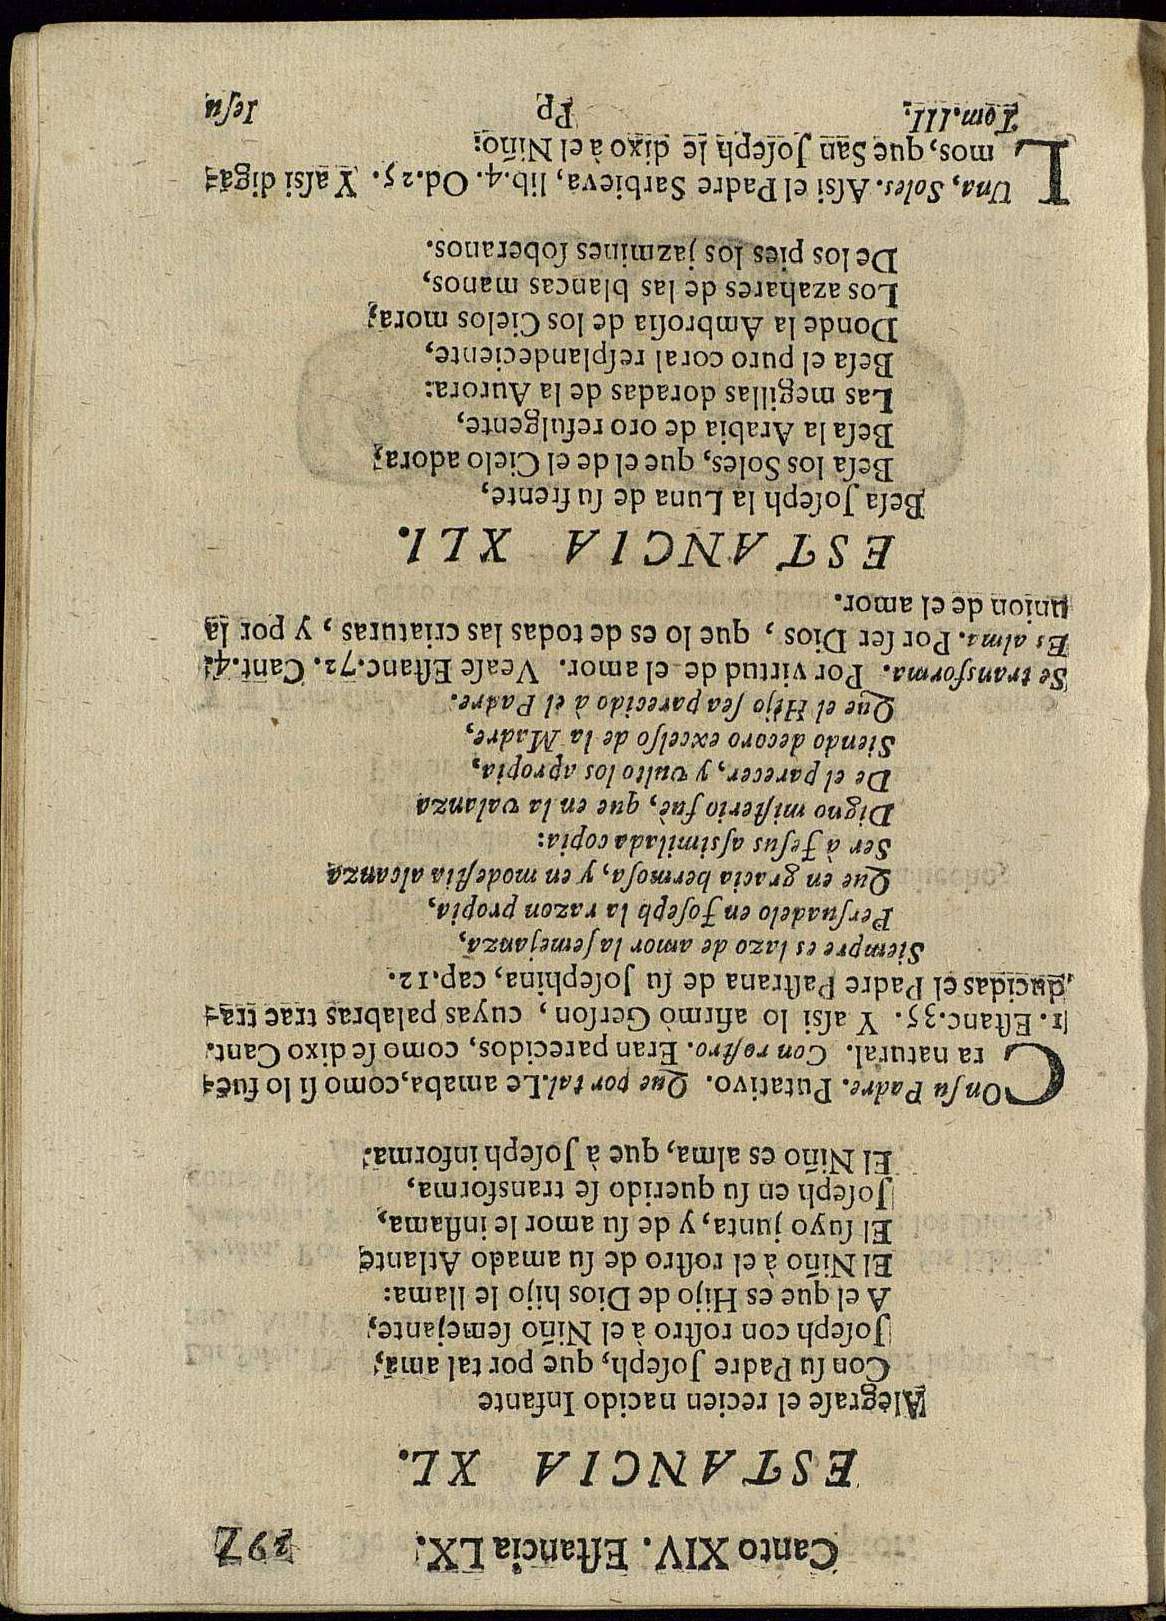 Canto XIV. Eſtancia LX. 297
ESTANCIA XL.
Alegraſe el recien nacido Infante
Con ſu Padre Joſeph, que por tal ama;
Joſeph con roſtro à el Niño ſemejante,
A el que es Hijo de Dios hijo le llama:
El Niño à el roſtro de ſu amado Atlante
El ſuyo junta, y de ſu amor le inflama,
Joſeph en ſu querido ſe transforma,
El Niño es alma, que à Joſeph informa.
COn ſu Padre. Putativo. Que por tal. Le amaba, como ſi lo fue-
ra natural. Con roſtro. Eran parecidos, como ſe dixo Cant.
1. Eſtanc. 35. Y aſsi lo afirmò Gerſon, cuyas palabras trae tra-
ducidas el Padre Paſtrana de ſu Joſephina, cap. 12.
Siempre es lazo de amor la ſemejanza,
Perſuadelo en Joſeph la razon propia,
Que èn gracia hermoſa, y en modeſtia alcanza
Ser à Jeſus aſsimilada copia:
Digno miſterio fuè, que en la valanza
De el parecer, y vulto los apropia,
Siendo decoro excelſo de la Madre,
Que el Hijo ſea parecido à el Padre.
Se transforma. Por virtud de el amor. Veaſe Eſtanc. 72. Cant. 4.
Es alma. Por ſer Dios, que lo es de todas las criaturas, y por la
union de el amor.
ESTANCIA XLI.
Beſa Joſeph la Luna de ſu frente,
Beſa los Soles, que el de el Cielo adora;
Beſa la Arabia de oro refulgente,
Las megillas doradas de la Aurora:
Beſa el puro coral reſplandeciente,
Donde la Ambroſia de los Cielos mora;
Los azahares de las blancas manos,
De los pies los jazmines ſoberanos.
LUna, Soles. Aſsi el Padre Sarbieva, lib. 4. Od. 25. Y aſsi diga-
mos, que San Joſeph le dixo à el Niño:
Tom. III. Pp Jeſu